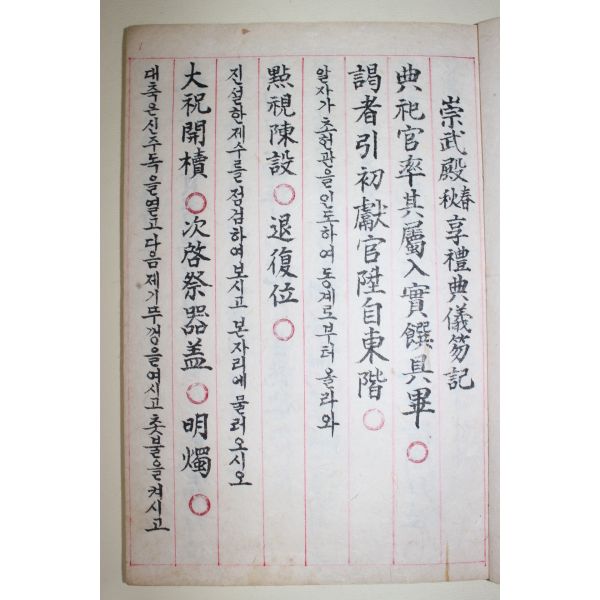 崇武殿春秋享禮典儀笏記
典祀官率其屬入實饌具畢 ○
謁者引初獻官陞自東階 ○
알자가 초헌관을 인도하여 동계로부터 올라와
點視陳設 ○ 退復位 ○
진설한 제수를 점검하여 보시고 본자리에 물러오시오
大祝開櫝 ○ 次啓祭器盖 ○ 明燭 ○
대축은 신주독을 열고 다음 제기 뚜껑을 여시고 촛불을 켜시고